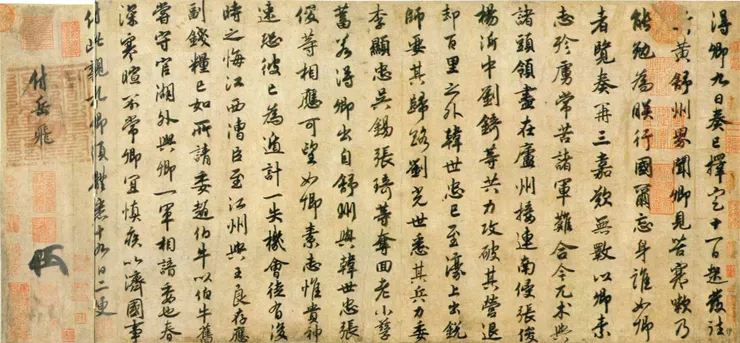 得卿九日奏已擇定十一日起發往
蘄黃舒州界聞卿見苦寒嗽乃
能勉為朕行國爾忘身誰如卿
者覽奏再三嘉歎無斁以卿素
志殄虜常苦諸軍難合今兀朮與
諸頭領盡在廬州接連南侵張俊
楊沂中劉錡等共力攻破其營退
却百里之外韓世忠已至濠上出銳
師要其歸路劉光世悉其兵力委
李顯忠吳錫張琦等奪回老小孳
畜若得卿出自舒州與韓世忠張
俊等相應可望如卿素志惟貴神
速恐彼已為遁計一失機會徒有後
時之悔江西漕臣至江州與王良存應
副錢糧已如所請委趙伯牛以伯牛舊
嘗守官湖外與卿一軍相諳委也春
深寒暄不常卿宜慎疾以濟國事
付此親札卿須體悉十九日二更
付岳飛